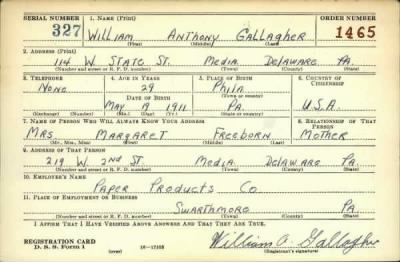 SERIAL NUMBER 1. NAME (Print) ORDER NUMBER
327 William Anthony Gallagher 1465
(First) (Middle) (Last)
2. ADDRESS (Print)
114 W. State St. Media Delaware Pa.
(Number and street or R. F. D. number) (Town) (County) (State)
3. TELEPHONE 4. AGE IN YEARS 5. PLACE OF BIRTH 6. COUNTRY OF CITIZENSHIP
None 29 Phila
(Town or county)
DATE OF BIRTH
May 9 1911 Pa. U.S.A.
(Exchange) (Number) (Mo.) (Day) (Yr.) (State or country)
7. NAME OF PERSON WHO WILL ALWAYS KNOW YOUR ADDRESS 8. RELATIONSHIP OF THAT PERSON
Mrs. Margaret Freeborn Mother
(Mr., Mrs., Miss) (First) (Middle) (Last)
9. ADDRESS OF THAT PERSON
219 W. 2nd St. Media Delaware Pa.
(Number and street or R. F. D. number) (Town) (County) (State)
10. EMPLOYER'S NAME
Paper Products Co
11. PLACE OF EMPLOYMENT OR BUSINESS
Swarthmore Pa.
(Number and street or R. F. D. number) (Town) (County) (State)
I AFFIRM THAT I HAVE VERIFIED ABOVE ANSWERS AND THAT THEY ARE TRUE.
REGISTRATION CARD
D. S. S. Form 1 (over) 16—17105 William A. Gallagher
(Registrant's signature)